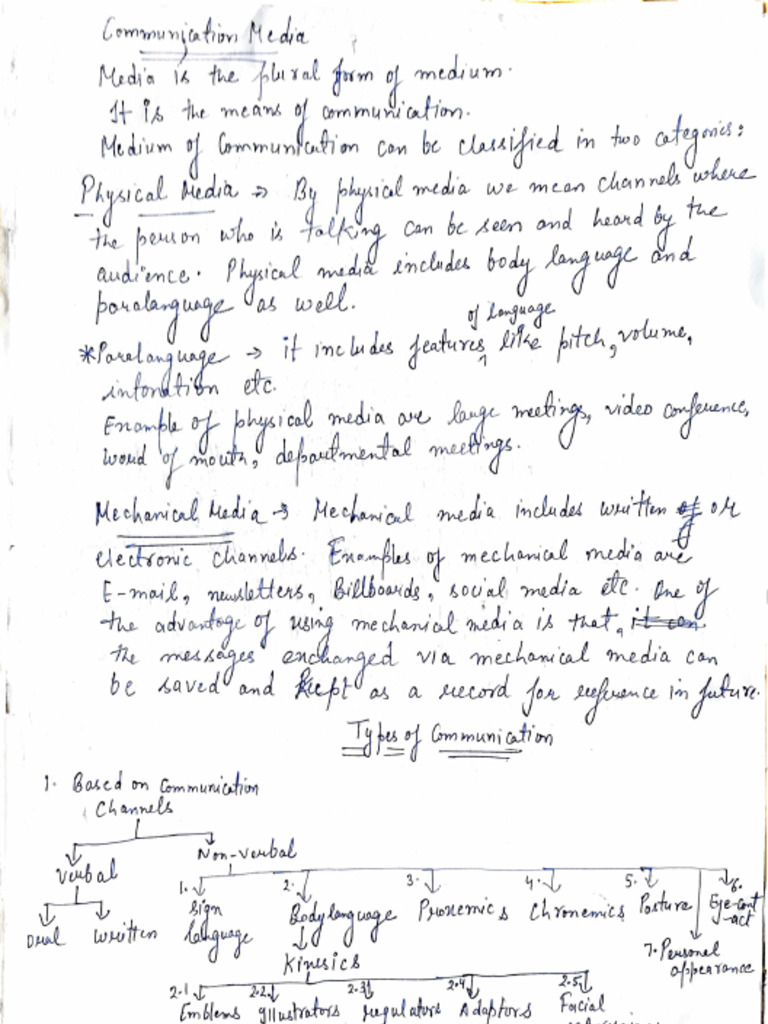 Communication Media
Media is the plural form of medium.
It is the means of communication.
Medium of Communication can be classified in two categories:
Physical Media → By physical media we mean channels where
the person who is talking can be seen and heard by the
audience. Physical media includes body language and
paralanguage as well.
*Paralanguage → it includes features of language like pitch, volume,
intonation etc.
Example of physical media are large meetings, video conference,
word of mouth, departmental meetings.
Mechanical Media → Mechanical media includes written or
electronic channels. Examples of mechanical media are
E-mail, newsletters, Billboards, social media etc. One of
the advantage of using mechanical media is that, it can
the messages exchanged via mechanical media can
be saved and kept as a record for reference in future.
Types of Communication
1. Based on Communication
Channels
Verbal
Non-verbal
Oral
written
1. Sign
language
2. Body language
Kinesics
3. Proxemics
4. Chronemics
5. Posture
6. Eye-cont
act
7. Personal
appearance
2.1 Emblems
2.2 Illustrators
2.3 regulators
2.4 Adaptors
2.5 Facial